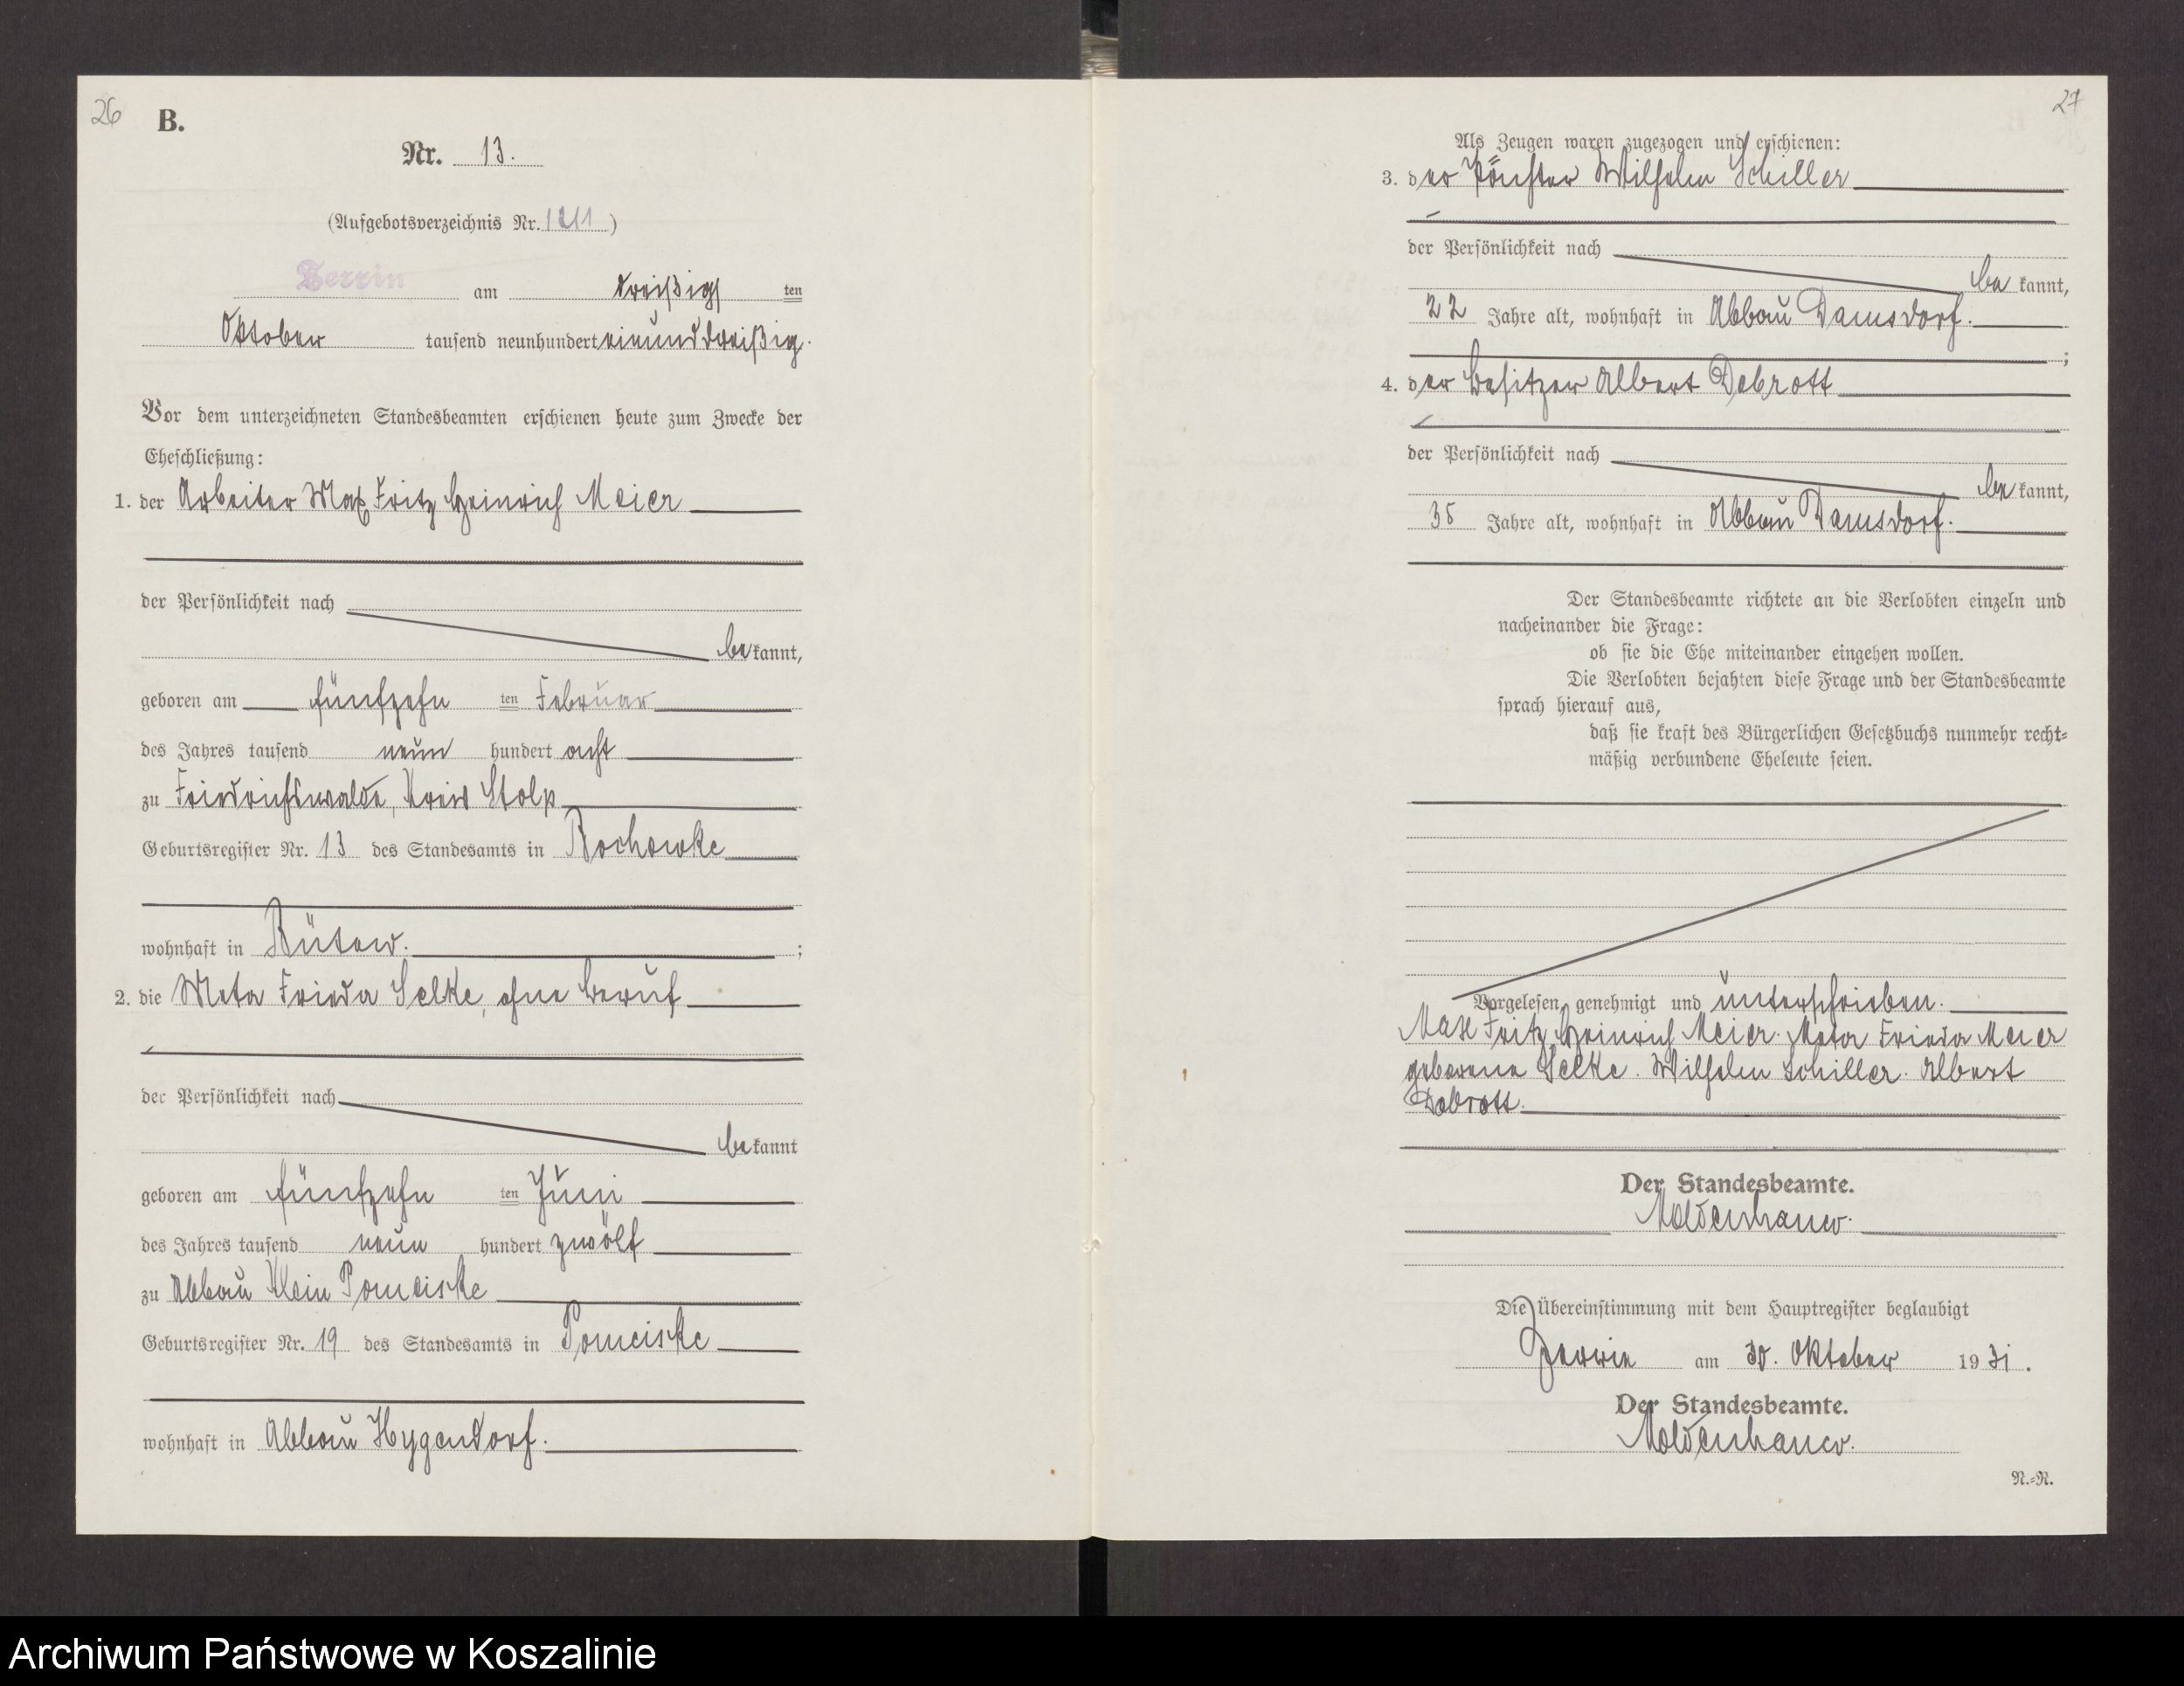 26
B.
Nr. 13.
(Aufgebotsverzeichnis Nr. )
Zerrin am dreißigsten
Oktober tausend neunhundert einunddreißig.
Vor dem unterzeichneten Standesbeamten erschienen heute zum Zwecke der
Eheschließung:
1. der Arbeiter Max Fritz Heinrich Meier
der Persönlichkeit nach
bekannt,
geboren am fünfzehnten Februar
des Jahres tausend neun hundert acht
zu Friedrichswalde, Kreis Stolp
Geburtsregister Nr. 13 des Standesamts in Rochowke
wohnhaft in Bütow. ;
2. die Meta Frieda Selke, ohne Beruf
der Persönlichkeit nach
bekannt
geboren am fünfzehnten Juni
des Jahres tausend neun hundert zwölf
zu Abbau Klein Pomeiske
Geburtsregister Nr. 19 des Standesamts in Pomeiske
wohnhaft in Abbau Hygendorf.
27
Als Zeugen waren zugezogen und erschienen:
3. der Wilhelm Schiller
der Persönlichkeit nach
bekannt,
22 Jahre alt, wohnhaft in Abbau Damsdorf.
;
4. der Besitzer Albert Dobrott
der Persönlichkeit nach
bekannt,
35 Jahre alt, wohnhaft in Abbau Damsdorf.
Der Standesbeamte richtete an die Verlobten einzeln und
nacheinander die Frage:
ob sie die Ehe miteinander eingehen wollen.
Die Verlobten bejahten diese Frage und der Standesbeamte
sprach hierauf aus,
daß sie kraft des Bürgerlichen Gesetzbuchs nunmehr recht-
mäßig verbundene Eheleute seien.
Vorgelesen, genehmigt und unterschrieben.
Max Fritz Heinrich Meier. Meta Frieda Meier
geborene Selke. Wilhelm Schiller. Albert
Dobrott.
Der Standesbeamte.
Moldenhauer.
Die Übereinstimmung mit dem Hauptregister beglaubigt
Zerrin am 30. Oktober 1931.
Der Standesbeamte.
Moldenhauer.
N.-R.
Archiwum Państwowe w Koszalinie